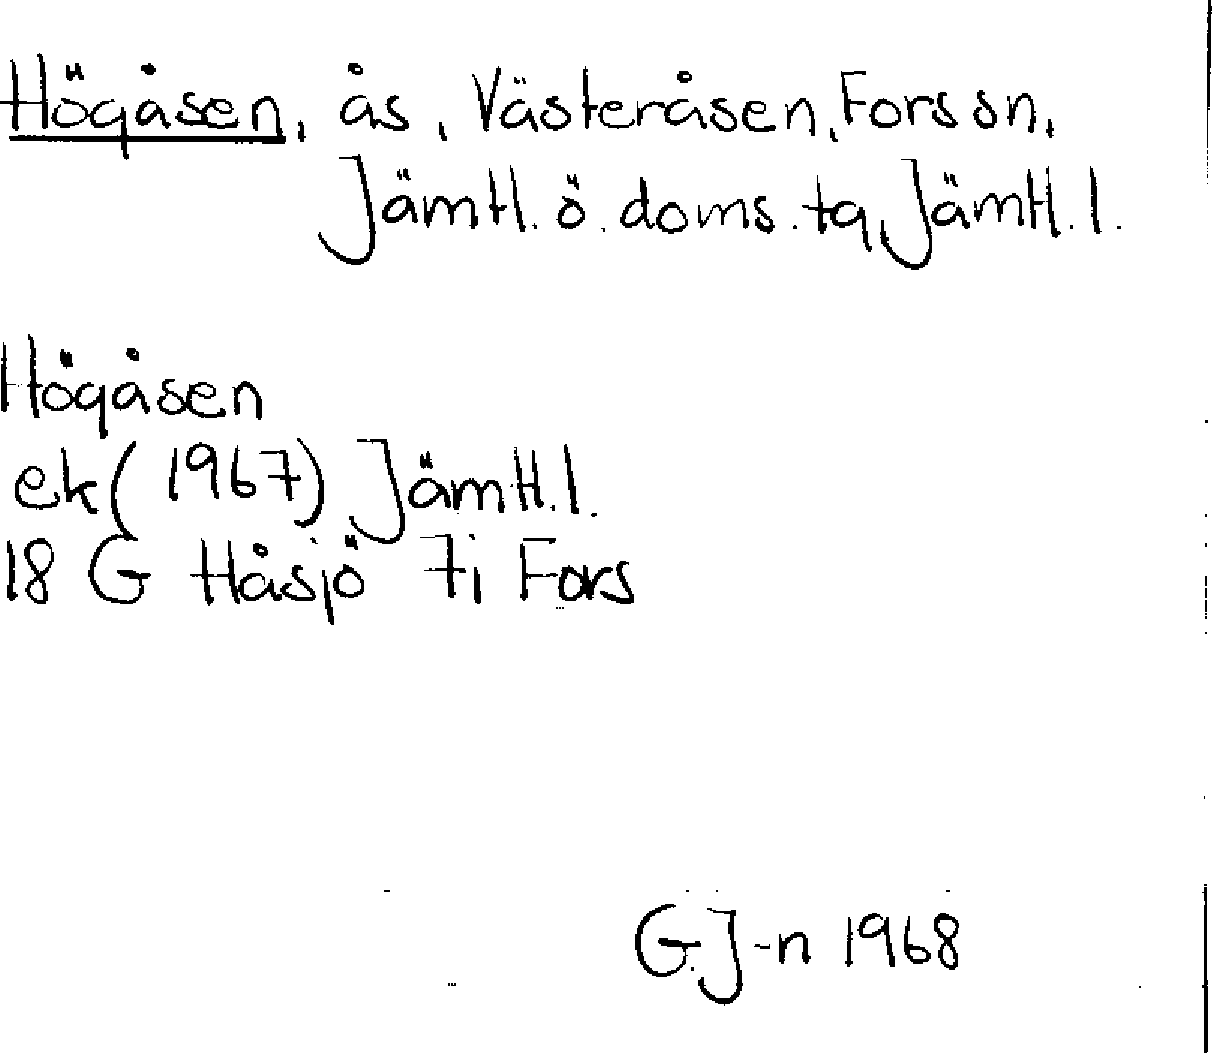 Högåsen, ås, Västeråsen, Fors sn,
Jämtl. ö. doms. tg, Jämtl. l.
Högåsen
ek (1967) Jämtl. l.
18 G Håsjö 7i Fors
G.J-n 1968